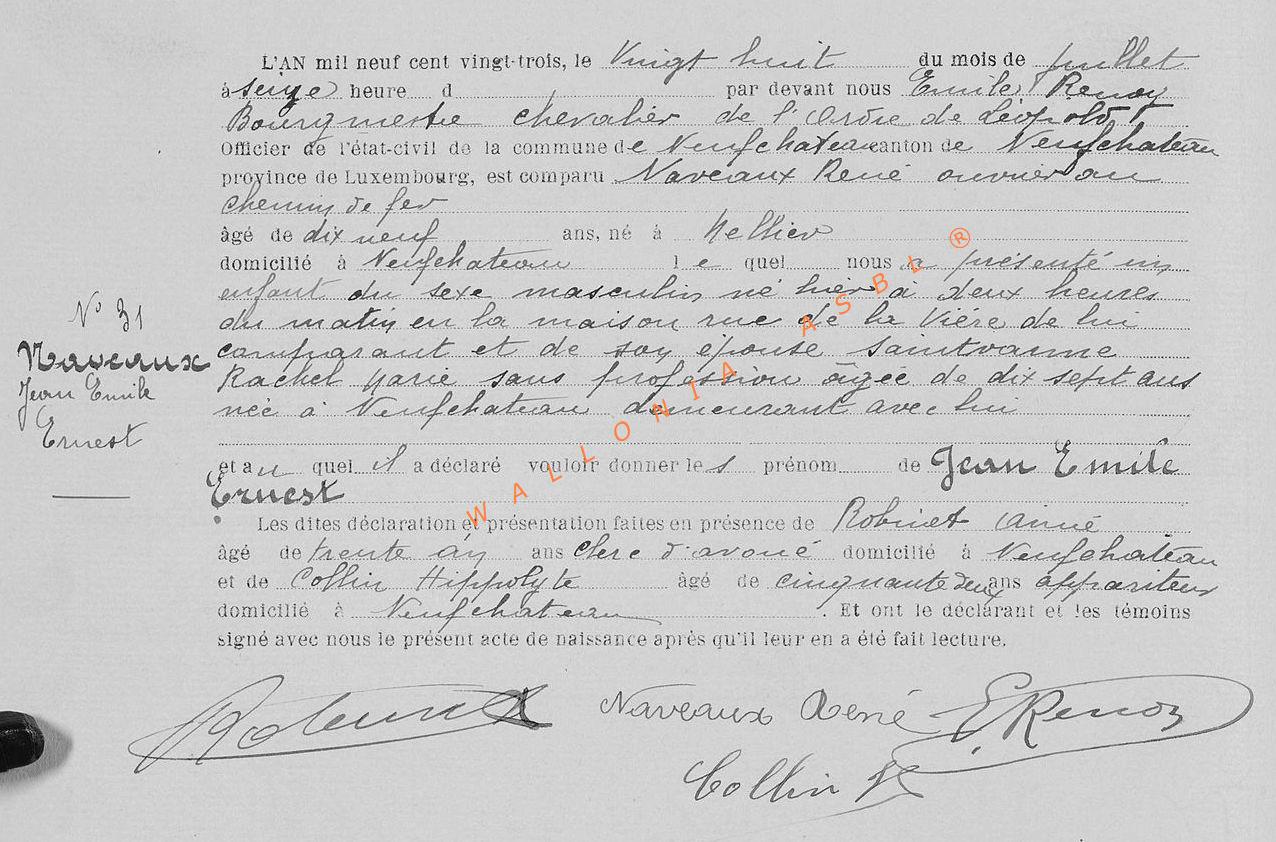 L'AN mil neuf cent vingt-trois, le Vingt huit du mois de juillet
à seize heure d par devant nous Emile Renoy
Bourgmestre chevalier de l'Ordre de Léopold
Officier de l'état-civil de la commune de Neufchateau canton de Neufchateau
province de Luxembourg, est comparu Naveaux René ouvrier au
chemin de fer
âgé de dix neuf ans, né à Mellier
domicilié à Neufchateau le quel nous a présenté un
enfant du sexe masculin né hier à deux heures
du matin en la maison rue de la Vière de lui
comparant et de son épouse Saintvanne
Rachel Marie sans profession âgée de dix sept ans
née à Neufchateau demeurant avec lui
N° 31
Naveaux
Jean Emile
Ernest
et au quel il a déclaré vouloir donner les prénom de Jean Emile
Ernest
Les dites déclaration et présentation faites en présence de Robinet Aimé
âgé de trente ans clerc d'avoué domicilié à Neufchateau
et de Collin Hippolyte âgé de cinquante deux ans appariteur
domicilié à Neufchateau. Et ont le déclarant et les témoins
signé avec nous le présent acte de naissance après qu'il leur en a été fait lecture.
Naveaux René E. Renoy
Collin H
WALLONIA ASBL ®